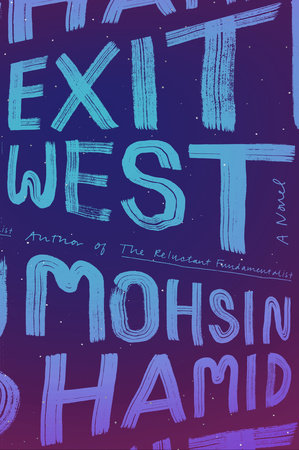 HA
EXIT
WEST
A Novel
ist
Author of The Reluctant Fundamentalist
MOHSIN
HAMID